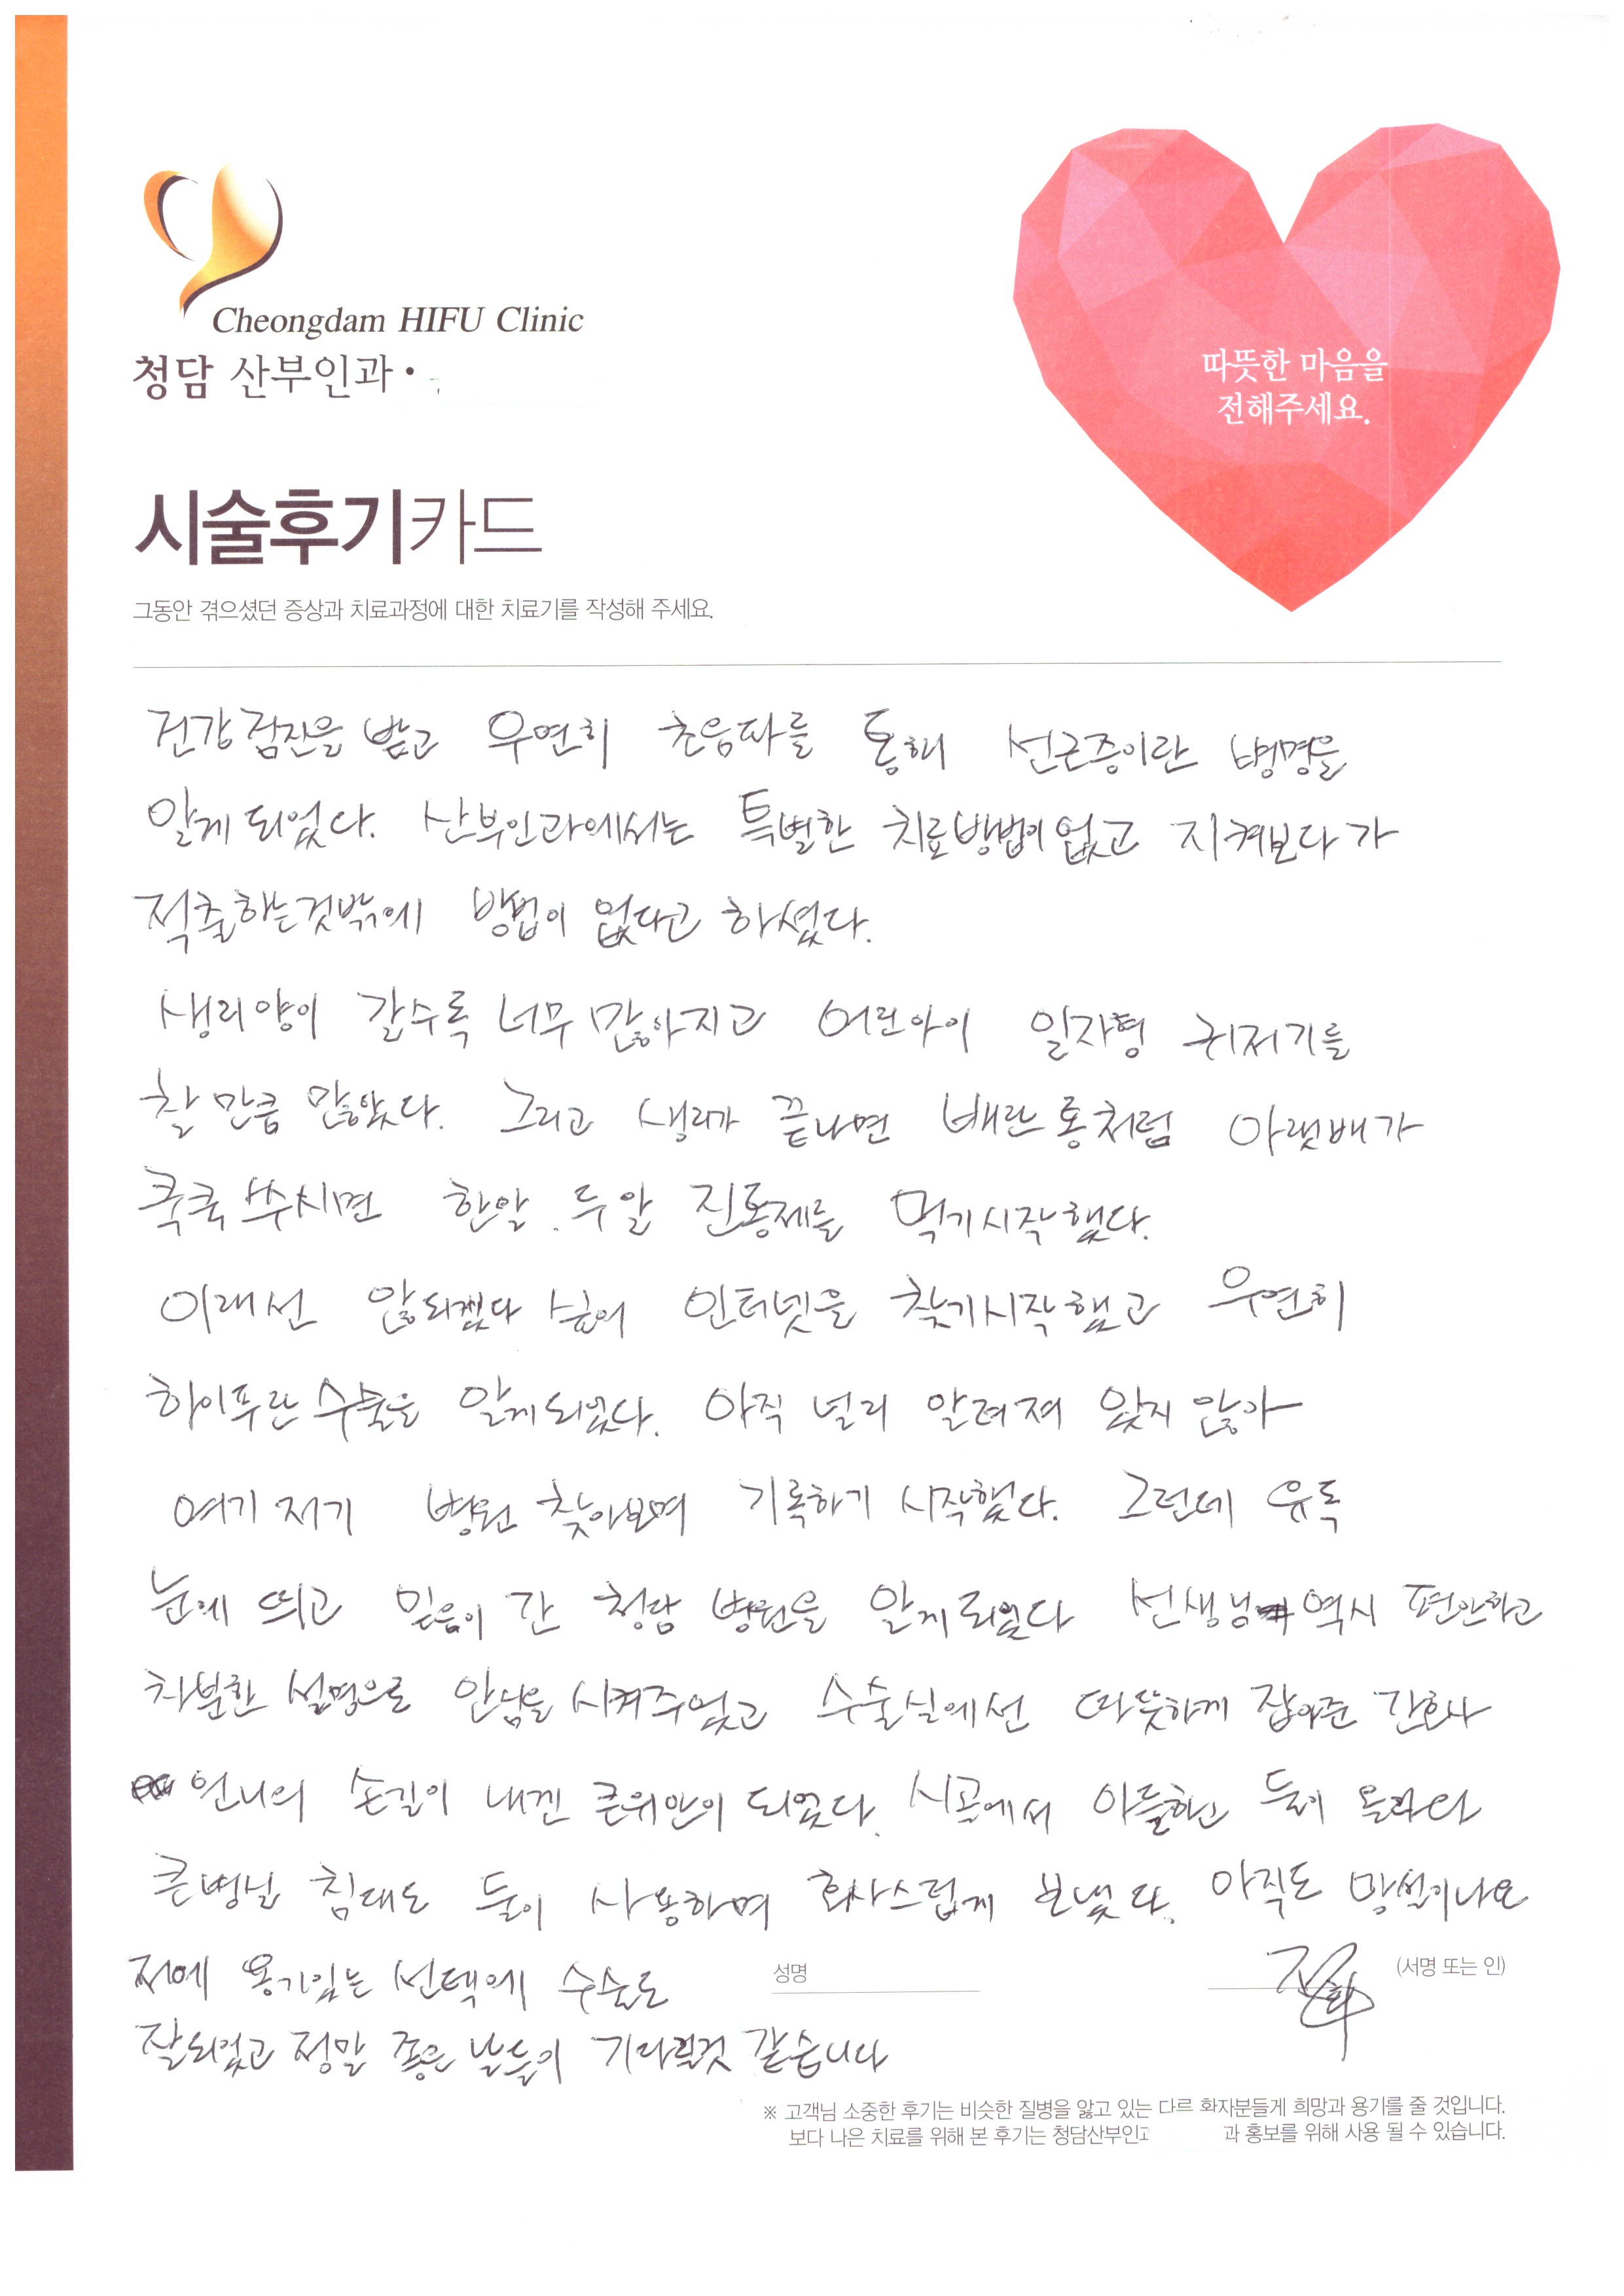 Cheongdam HIFU Clinic
청담 산부인과 •
따뜻한 마음을
전해주세요.
시술후기카드
그동안 겪으셨던 증상과 치료과정에 대한 치료기를 작성해 주세요.
건강검진을 받고 우연히 초음파를 통해 선근증이란 병명을
알게 되었다. 산부인과에서는 특별한 치료방법이 없고 지켜보다가
적출하는것밖에 방법이 없다고 하셨다.
생리양이 갈수록 너무 많아지고 어린아이 일자형 귀저기를
찰 만큼 많았다. 그리고 생리가 끝나면 배란통처럼 아랫배가
쿡쿡 쑤시면 한알. 두알 진통제를 먹기시작했다.
이래선 않되겠다 싶어 인터넷을 찾기시작했고 우연히
하이푸란 수술을 알게되었다. 아직 널리 알려져 있지 않아
여기 저기 병원 찾아보며 기록하기 시작했다. 그런데 유독
눈에 띄고 믿음이 간 청담 병원을 알게 되었다 선생님 역시 편안하고
차분한 설명으로 안심을 시켜주었고 수술실에선 따뜻하게 잡아준 간호사
언니의 손길이 내겐 큰위안이 되었다. 시골에서 아들하고 둘이 올라와
큰병실 침대도 둘이 사용하며 호사스럽게 보냈다. 아직도 망설이나요
저에 용기있는 선택에 수술도
성명
(서명 또는 인)
잘되었고 정말 좋은 날들이 기다릴것 같습니다
※ 고객님 소중한 후기는 비슷한 질병을 앓고 있는 다르 화자분들게 희망과 용기를 줄 것입니다.
보다 나은 치료를 위해 본 후기는 청담산부인과 과 홍보를 위해 사용 될 수 있습니다.